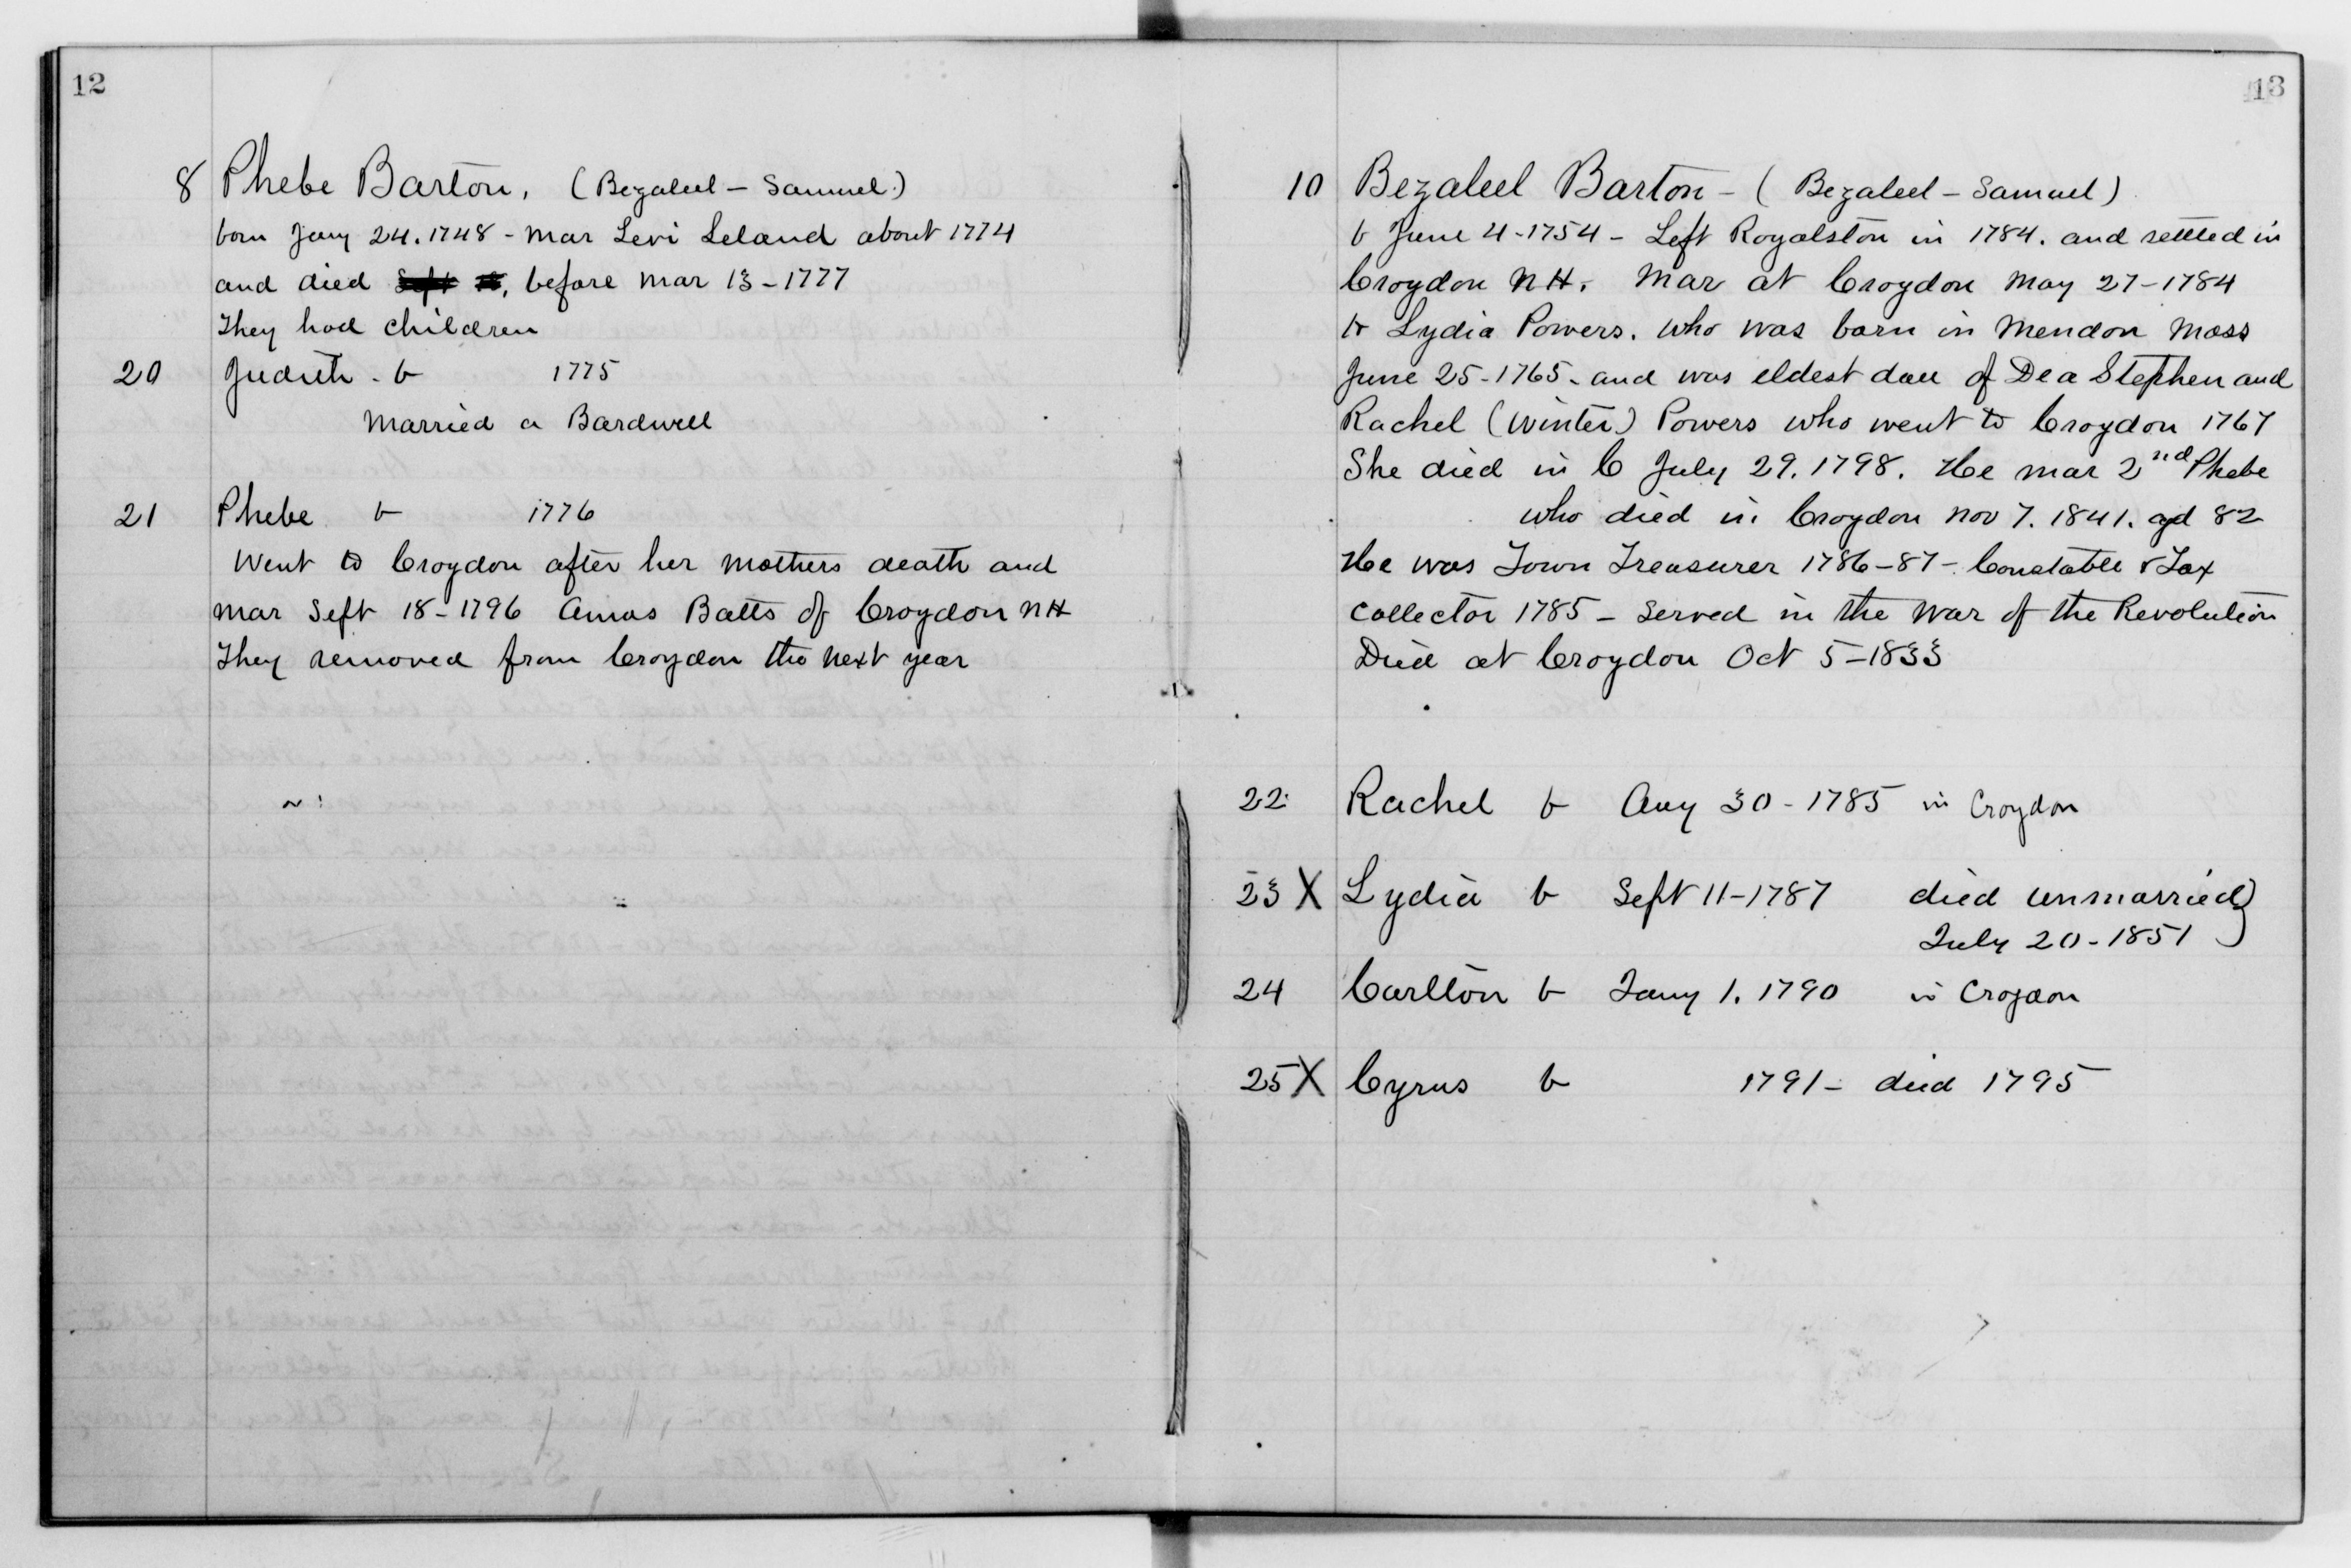 12
8 Phebe Barton, (Bezaleel – Samuel)
born Jany 24. 1748 - mar Levi Leland about 1774
and died before mar 13 – 1777
They had children
20 Judith - b 1775
married a Bardwell
21 Phebe b 1776
Went to Croydon after her mothers death and
mar Sept 18 – 1796 Amos Batts of Croydon NH
They removed from Croydon the next year
13
10 Bezaleel Barton – (Bezaleel – Samuel)
b June 4 - 1754 – Left Royalston in 1784. and settled in
Croydon NH. Mar at Croydon May 27 – 1784
to Lydia Powers. who was born in Mendon Mass
June 25 - 1765. and was eldest dau of Dea Stephen and
Rachel (Winter) Powers who went to Croydon 1767
She died in C July 29. 1798. He mar 2nd Phebe
who died in Croydon Nov 7. 1841. agd 82
He was Town Treasurer 1786 – 87 – Constable & Tax
collector 1785 – Served in the War of the Revolution
Died at Croydon Oct 5 – 1833
22 Rachel b Aug 30 - 1785 in Croydon
23 X Lydia b Sept 11 – 1787 died unmarried)
July 20 - 1851
24 Carlton b Jany 1. 1790 in Croydon
25 X Cyrus b 1791 – died 1795